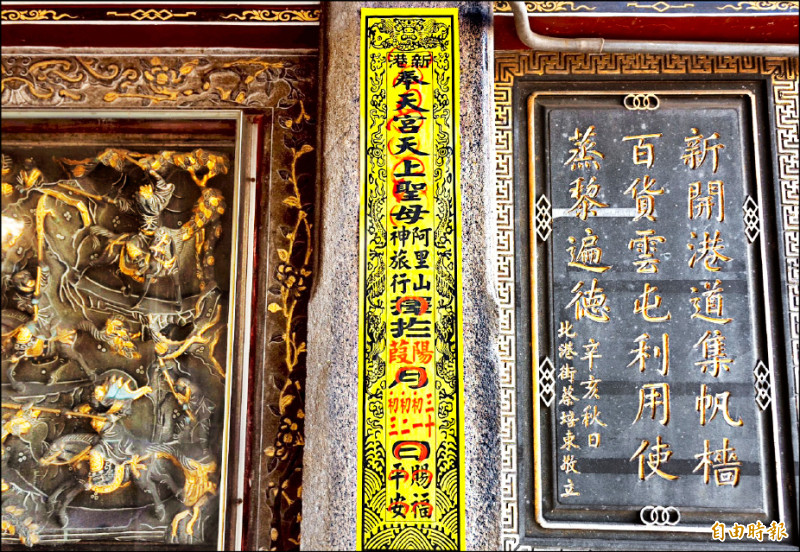 新港
奉天宮天上聖母
阿里山
神旅行
陽
葭
月
三十
初一
初二
初三
日
賜福
平安
新開港道集帆檣
百貨雲屯利用使
蒸黎遍德
辛亥秋日
北港街蔡培東敬立
自由時報